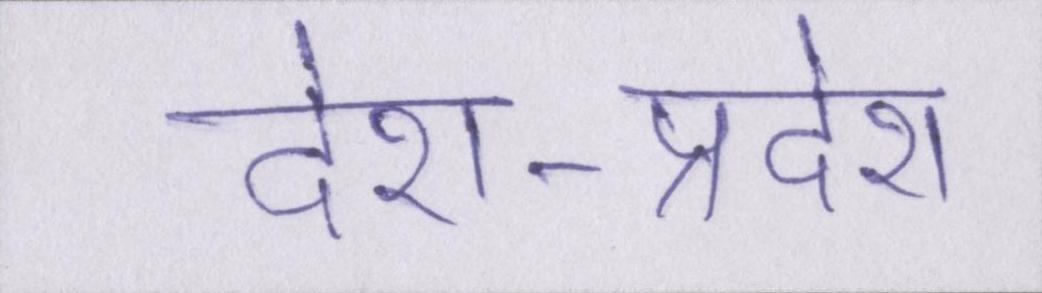 देश-प्रदेश